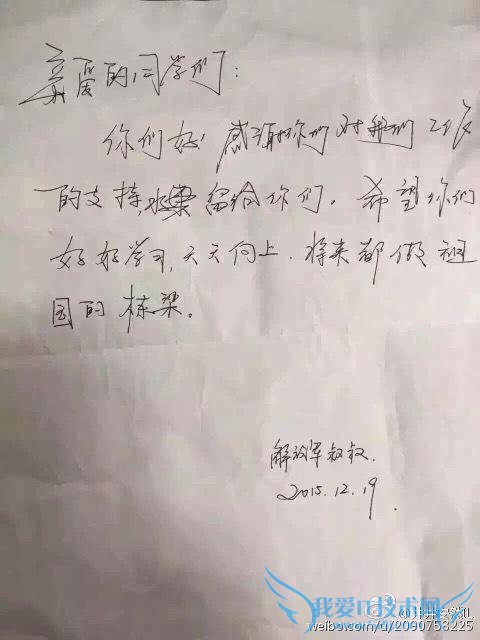 亲爱的同学们:
你们好!感谢你们对我们工作
的支持,水果留给你们。希望你们
好好学习,天天向上.将来都做祖
国的栋梁。
解放军叔叔.
2015.12.19.
我爱IT技术网
weibo.com/u/2090758225